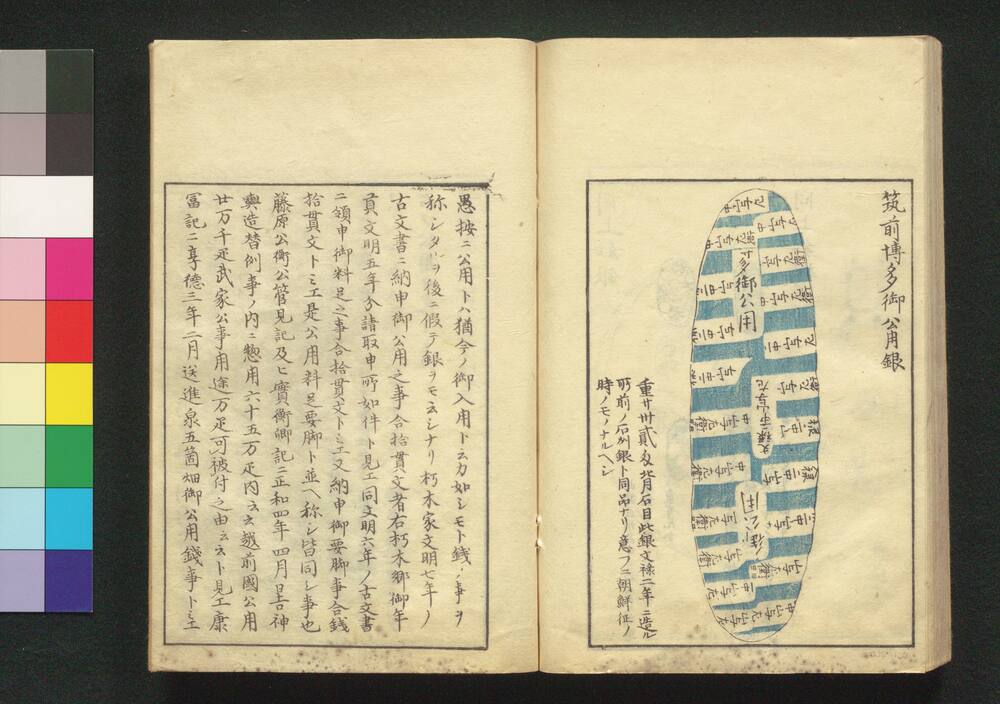 筑前博多御公用銀
多御公用
御公用
重サ卅貳匁背月石目此銀文禄二年ニ造ル
所前ノ石州銀ト同品ナリ意フニ朝鮮征ノ
時ノモノナルヘシ
愚按ニ公用トハ猶今ノ御入用ト云カ如シモト錢ノ事ヲ
称シタルヲ後ニ假テ銀ヲモ云シナリ朽木家文明七年ノ
古文書ニ納申御公用之事合拾貫文者右朽木郷御年
貢文明五年分請取申所如件ト見エ同文明六年ノ古文書
ニ領申御料足之事合拾貫文トミエ又納申御要脚事合錢
拾貫文トミエ是公用料足要脚ト並ヘ称シ皆同シ事也
藤原公衡公管見記及ヒ實衡卿記正和四年四月日吉神
輿造替例事ノ内ニ惣用六十五万疋内云云越前國公用
廿万千疋武家公事用途万疋可被付之由云云ト見エ康
冨記ニ享德三年二月送進泉五箇畑御公用錢事トミエ